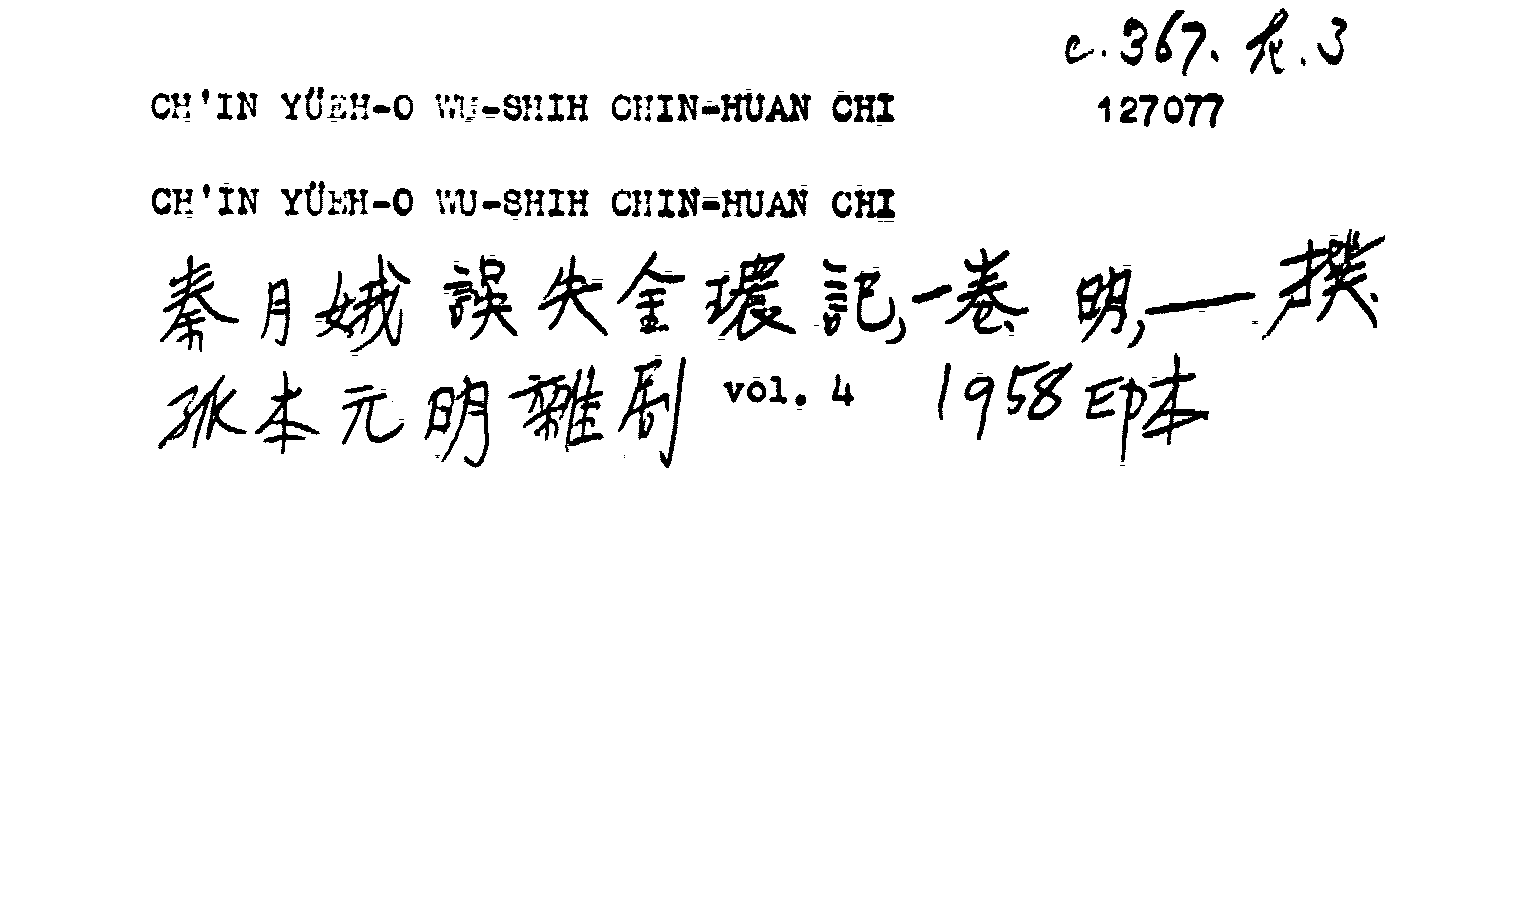 c.367.k.3
CH'IN YÜEH-O WU-SHIH CHIN-HUAN CHI 127077
CH'IN YÜEH-O WU-SHIH CHIN-HUAN CHI
秦月娥誤失金環記,一卷 明,——撰.
孤本元明雜剧 vol. 4 1958印本